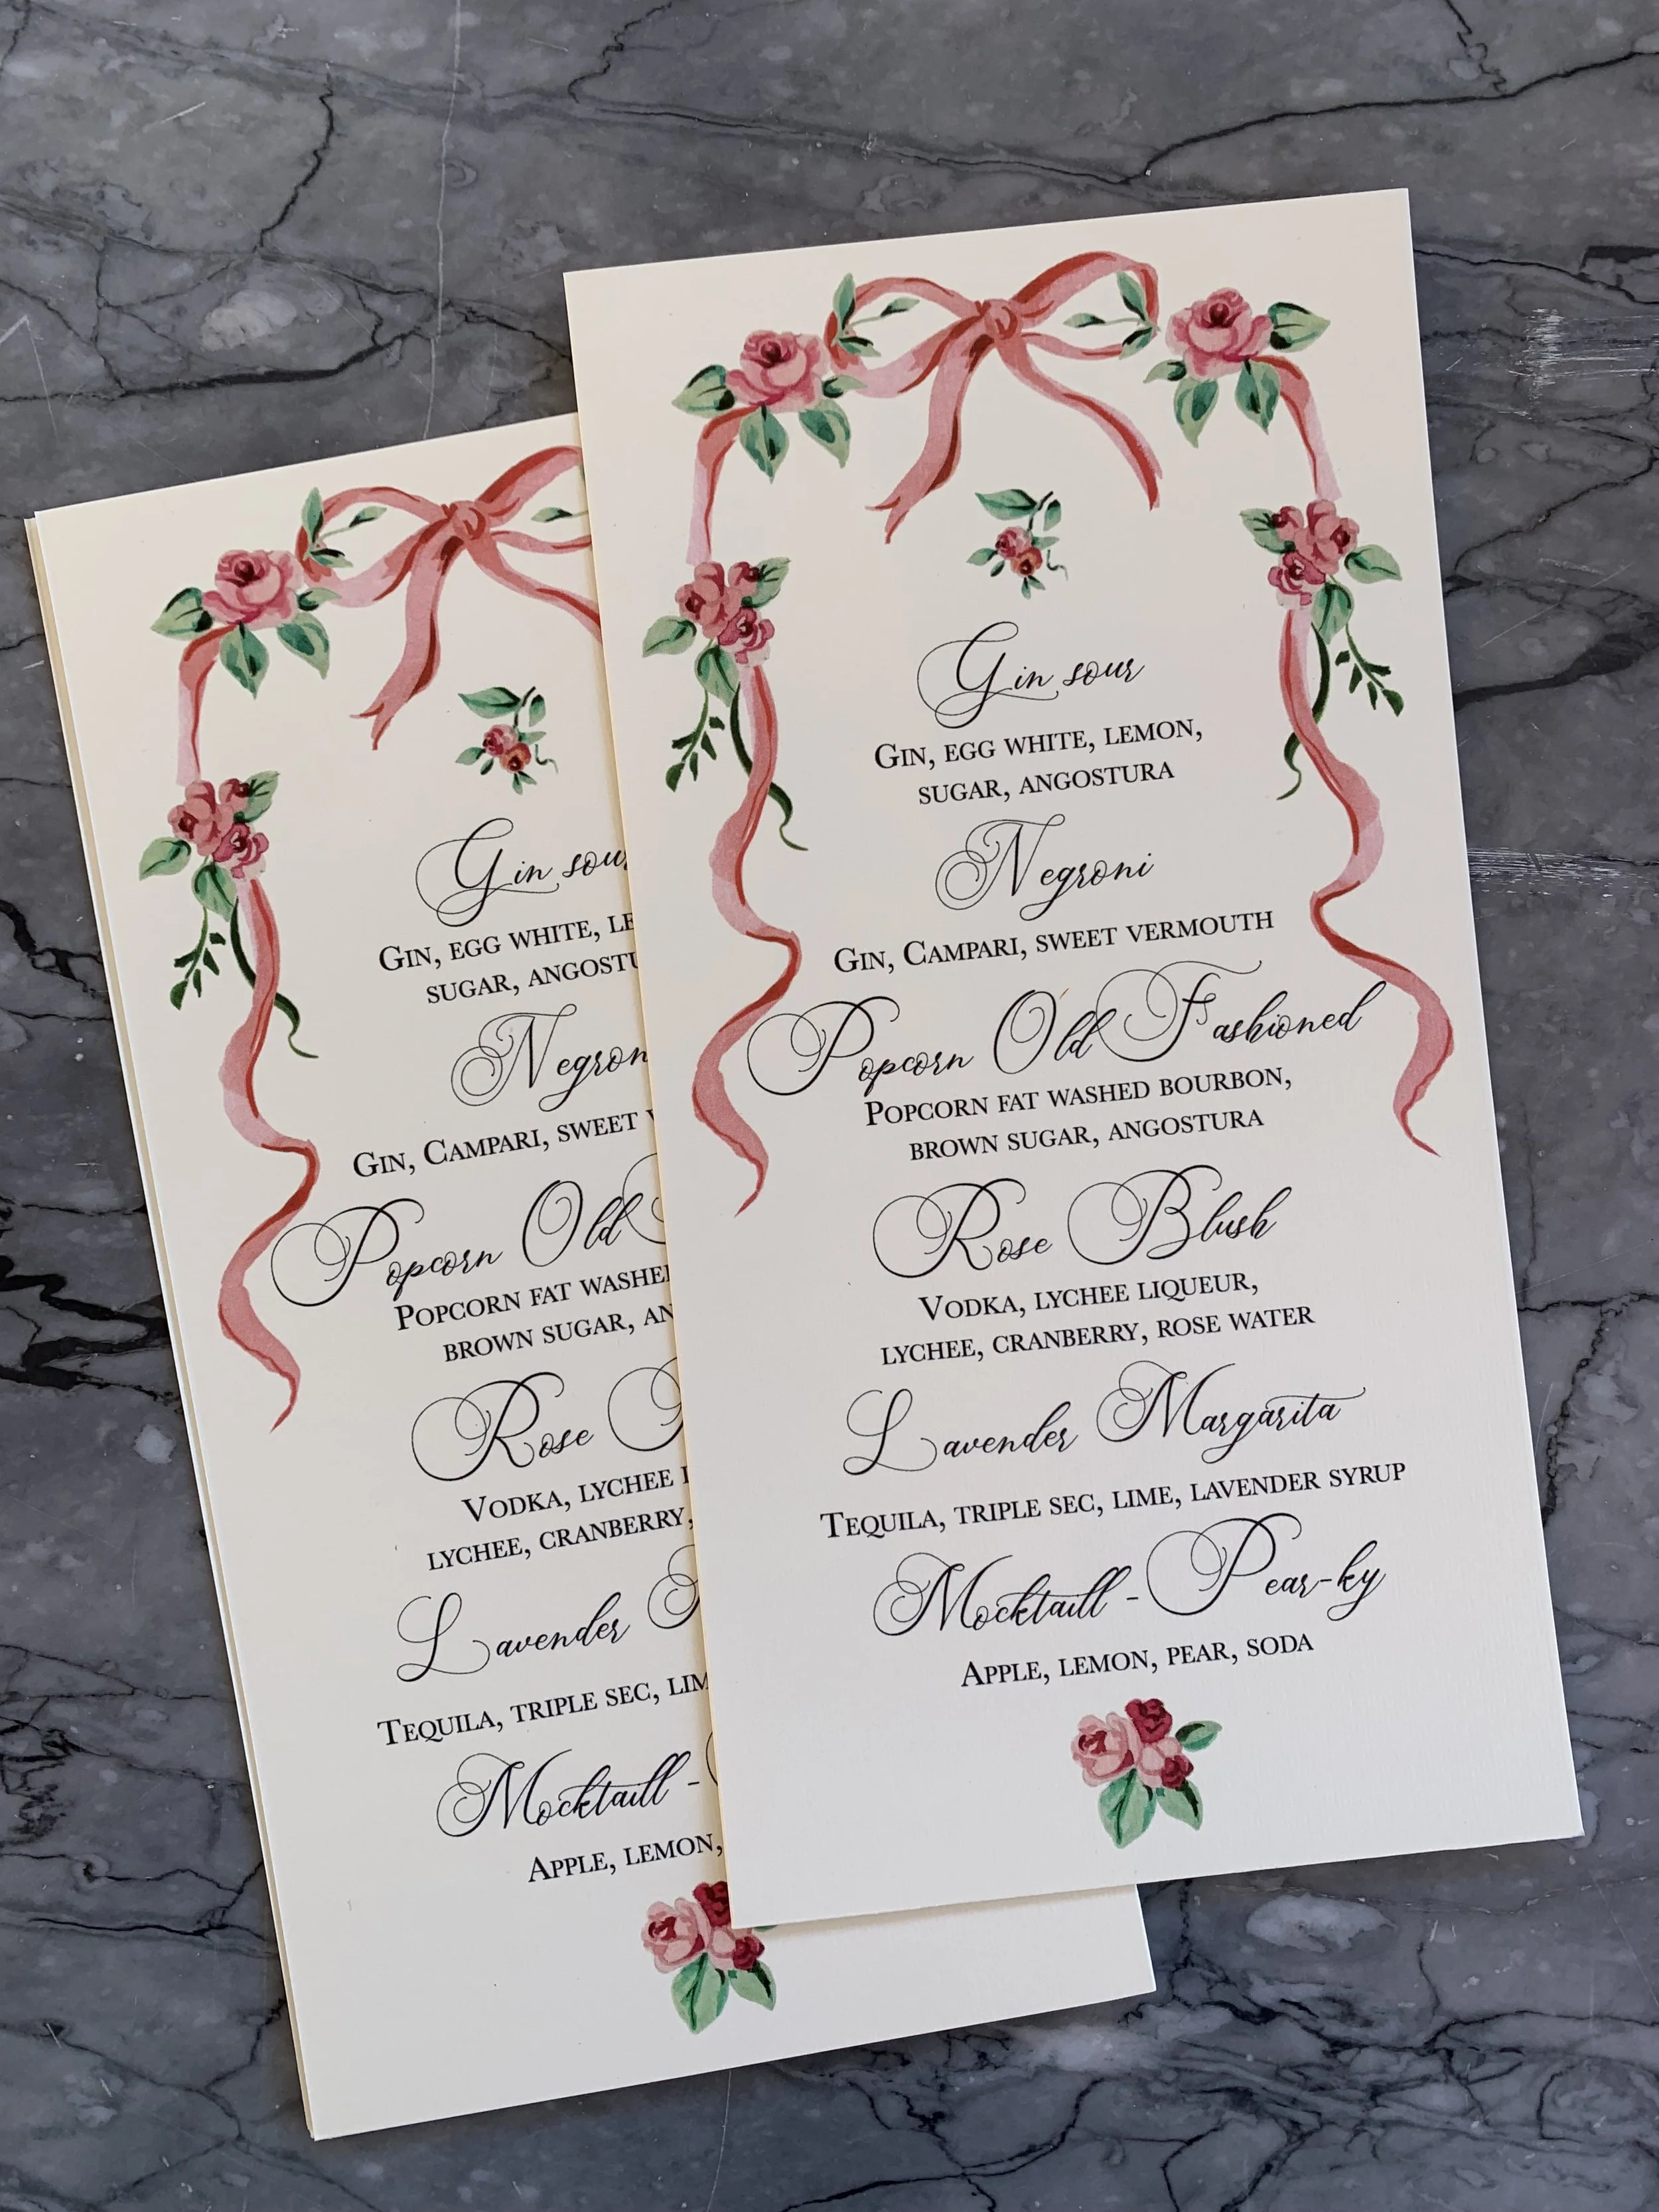 Gin sour
Gin, egg white, lemon,
sugar, angostura
Negroni
Gin, Campari, sweet vermouth
Popcorn Old Fashioned
Popcorn fat washed bourbon,
brown sugar, angostura
Rose Blush
Vodka, lychee liqueur,
lychee, cranberry, rose water
Lavender Margarita
Tequila, triple sec, lime, lavender syrup
Mocktaill - Pear-ky
Apple, lemon, pear, soda
Gin sour
Gin, egg white, le
sugar, angostu
Negron
Gin, Campari, sweet v
Popcorn Old
Popcorn fat washe
brown sugar, an
Rose
Vodka, lychee l
lychee, cranberry,
Lavender
Tequila, triple sec, lim
Mocktaill -
Apple, lemon,